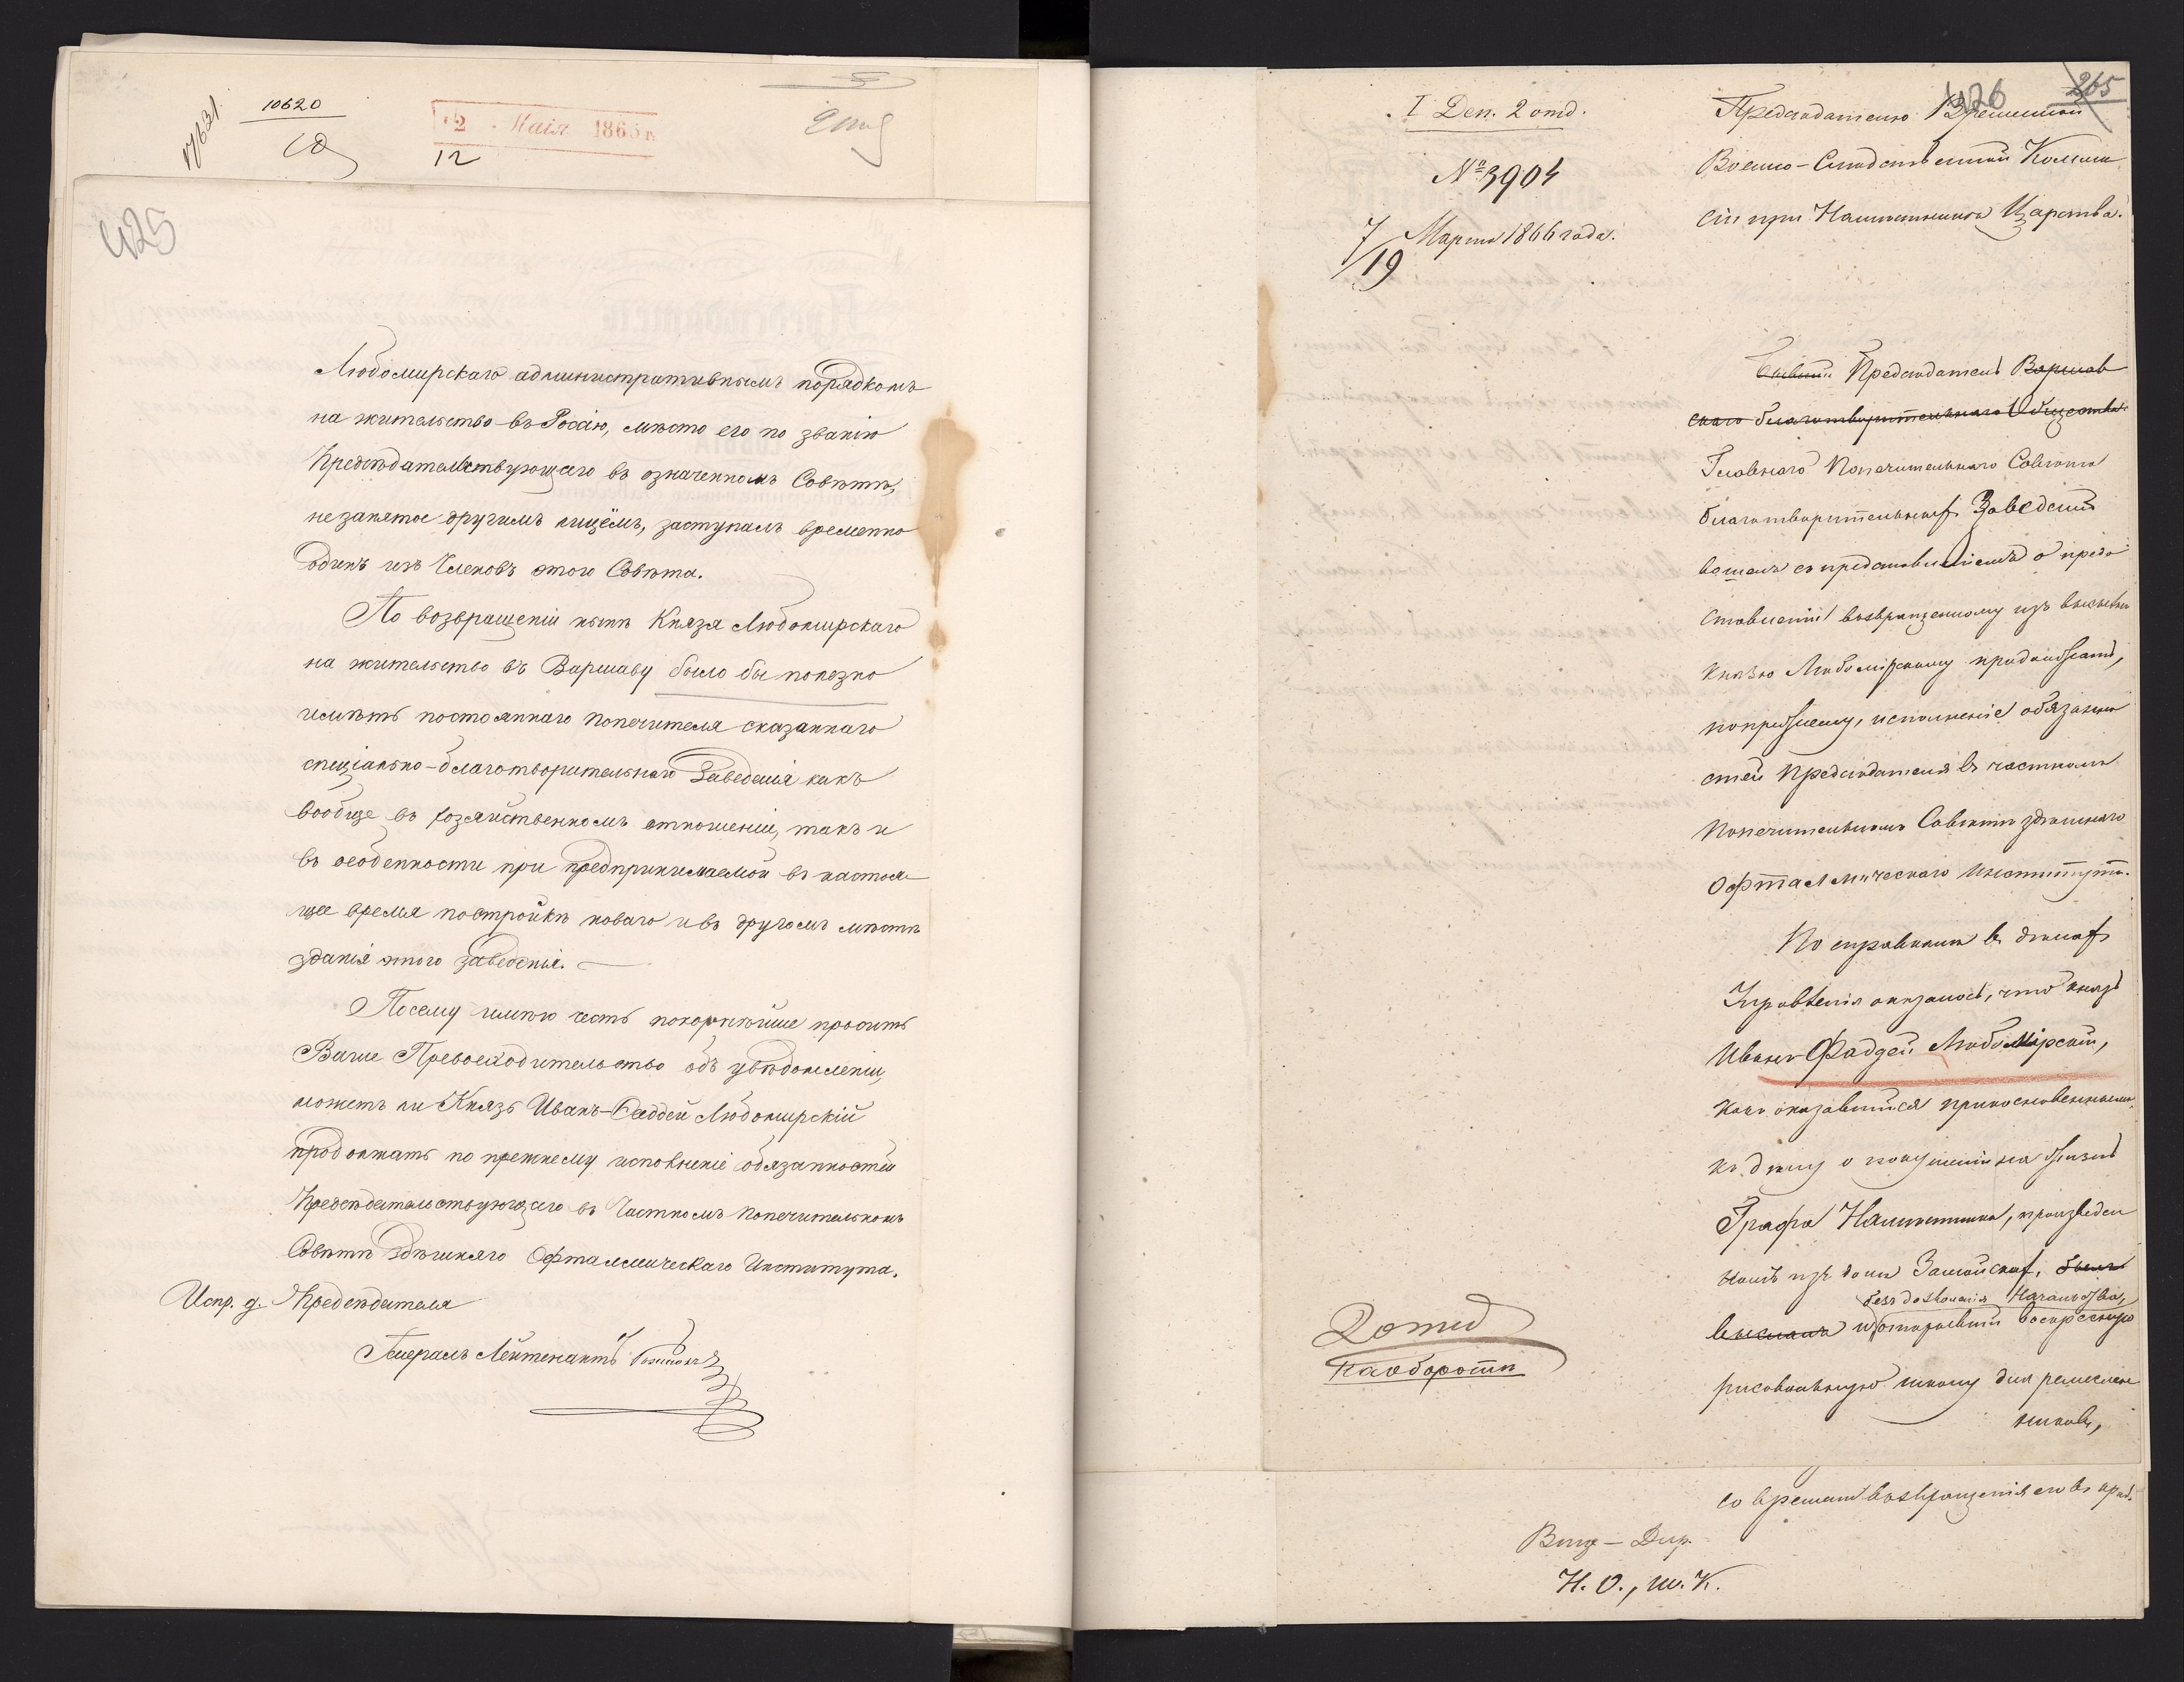 17631
10620
12 Маія 1865 г.
12
425
Любомирскаго административнымъ порядкомъ
на жительство въ Россію, мѣсто его по званію
Предсѣдательствующаго въ означенномъ Совѣтѣ,
не занятое другимъ лицёмъ, заступалъ временно
одинъ изъ Членовъ этого Совѣта.
По возвращеніи нынѣ Князя Любомирскаго
на жительство въ Варшаву было бы полезно
имѣть постояннаго попечителя сказаннаго
спеціально-благотворительнаго Заведенія какъ
вообще въ хозяйственномъ отношеніи, такъ и
въ особенности при предпринимаемой въ настоя-
щее время постройкѣ новаго и въ другомъ мѣстѣ
зданія этого заведенія.
Посему имѣю честь покорнѣйше просить
Ваше Превосходительство объ увѣдомленіи,
можетъ ли Князь Иванъ-Фаддей Любомирскій
продолжать по прежнему исполненіе обязанностей
Предсѣдательствующаго въ Частномъ попечительномъ
Совѣтѣ здѣшняго Офталмическаго Института.
Испр. д. Предсѣдателя
Генералъ Лейтенантъ
I Деп. 2 отд.
№ 3904
7/19 Марта 1866 года.
426
265
Предсѣдателю Временной
Военно-Слѣдственной Комми
сіи при Намѣстникѣ Царства.
Бывшій Предсѣдатель Варшав
скаго благотворительнаго Общества
Главнаго Попечительнаго Совѣта
благотворительныхъ Заведеній
вошелъ съ представленіемъ о предо
ставленіи возвращенному изъ высылки
Князю Любомірскому продолжать,
попрежнему, исполненіе обязанно
стей Предсѣдателя въ частномъ
Попечительномъ Совѣтѣ здѣшняго
Офталмическаго Института.
По справкамъ въ дѣлахъ
Управленія оказалось, что князь
Иванъ-Фаддей Любомірскій,
какъ оказавшійся прикосновеннымъ
къ дѣлу о покушеніи на жизнь
Графа Намѣстника, произведен
номъ изъ дома Замойскаго, былъ
безъ дозволенія Начальства,
высланъ и открывшій воскресную
рисовальную школу для ремеслен
никовъ,
2 отд
На оборотѣ
со времени возвращенія его въ край.
Вице-Дир.
Н. О., Ш. К.